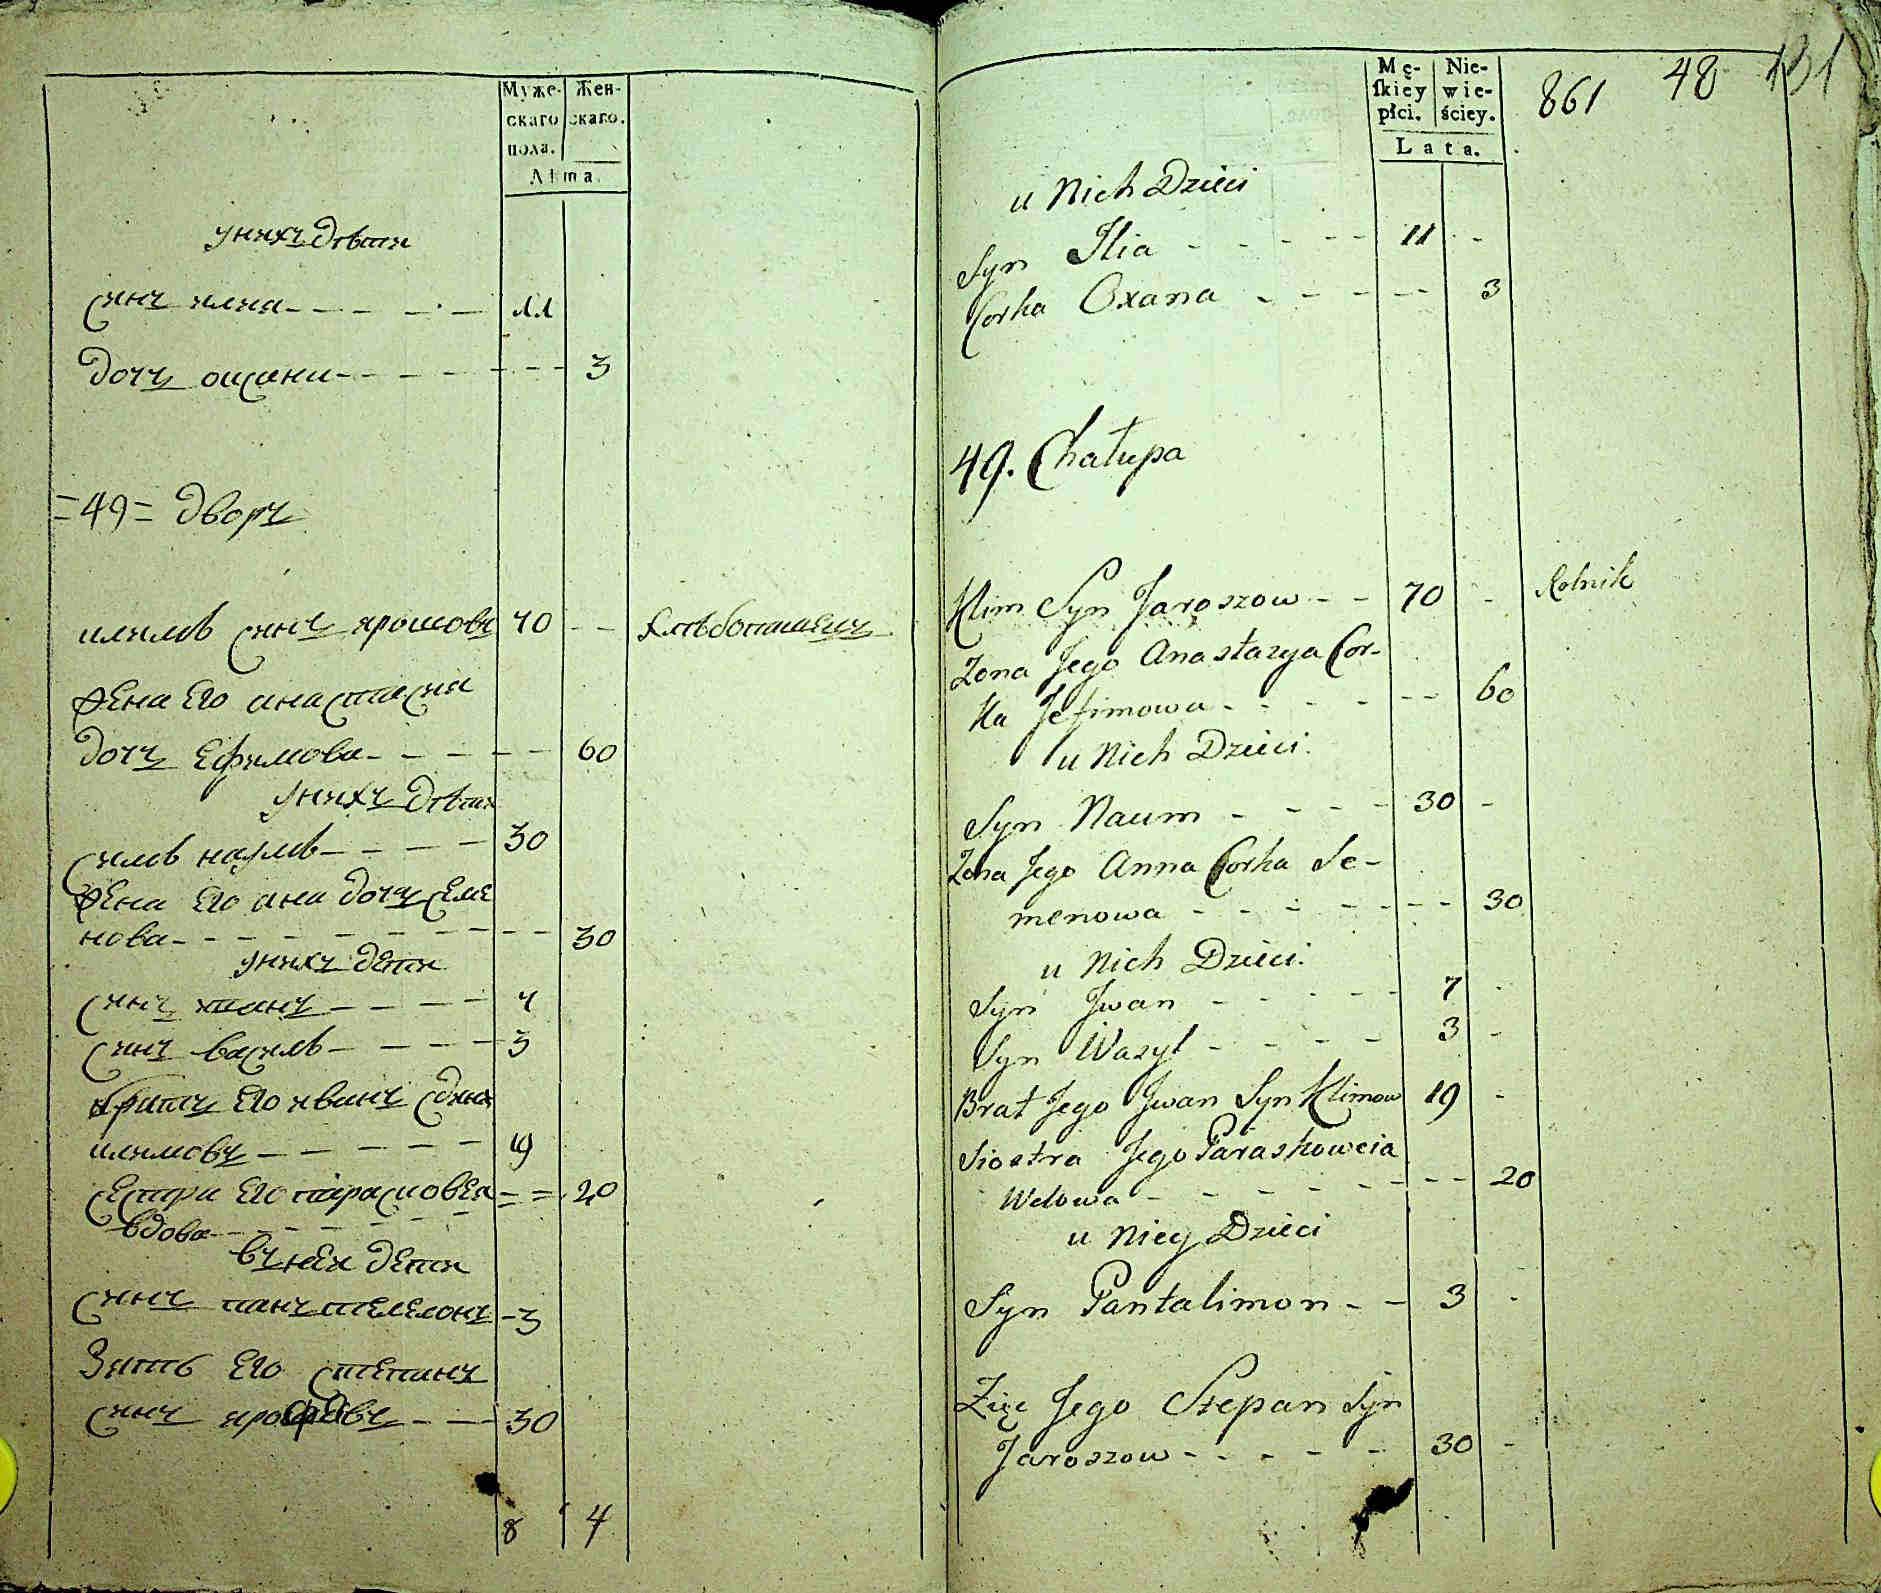 Муже-
скаго
пола.
Жен-
скаго.
Лѣта.
унихъ дѣти
синъ илиа - - - - - 11
дочъ оксана - - - - - - - 3
=49= дворъ
климъ синъ ярошовъ 70 - - хлѣбопашецъ
жена Его анастасиа
дочъ Ефимова - - - - - 60
унихъ дѣти
синъ наумъ - - - - - 30
жена Его ана дочъ семе
нова - - - - - - - - - 30
унихъ дети
синъ иванъ - - - - - 7
синъ василь - - - - - 3
братъ Его иванъ синъ
климовъ - - - - - - 19
сестра Его парасковеа = = 20
вдова - - - - - - -
въ неи дети
синъ пантелемонъ - 3
Зять Его степанъ
синъ - - - 30
8 4
Mę-
ſkiey
płci.
Nie-
wie-
ściey.
Lata.
861 48 131
u Nich Dzieci
Syn Ilia - - - - - 11 - -
Corka Oxana - - - - - - 3
49. Chałupa
Klim Syn Jaroszow - - 70 - Rolnik
Zona Jego Anastazya Cor-
ka Jefimowa - - - - - - 60
u Nich Dzieci
Syn Naum - - - - - 30 -
Zona Jego Anna Corka Se-
menowa - - - - - - - 30
u Nich Dzieci
Syn Jwan - - - - - 7 -
Syn Wasyl - - - - - 3 -
Brat Jego Jwan Syn Klimow 19 -
Siostra Jego Paraskoweia
Wdowa - - - - - - - - - 20
u Niey Dzieci
Syn Pantalimon - - 3 -
Zięc Jego Stepan Syn
Jaroszow - - - - - 30 -